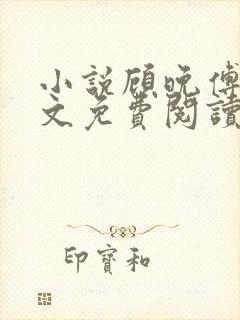 小説顧晚傅
文免費閱讀
印寶和